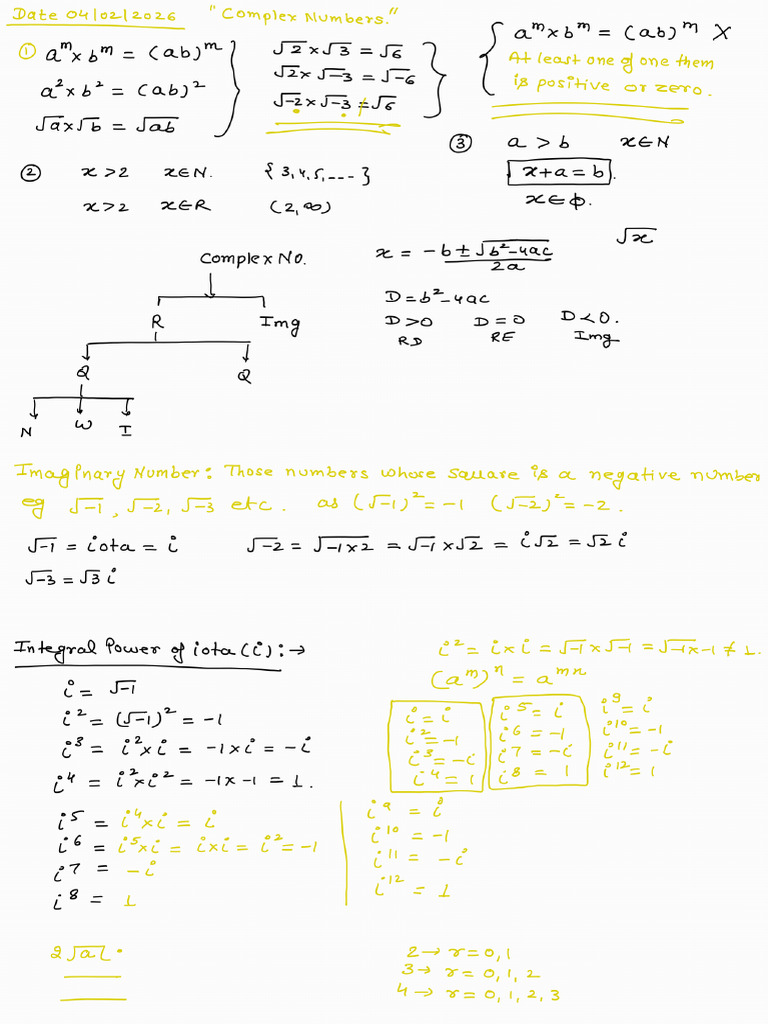 Date 04/02/2026 "Complex Numbers."
① aᵐ × bᵐ = (ab)ᵐ
a² × b² = (ab)²
√a × √b = √ab
√2 × √3 = √6
√2 × √-3 = √-6
√-2 × √-3 ≠ √6
aᵐ × bᵐ = (ab)ᵐ X
At least one of one them
is positive or zero.
② x > 2 x ∈ N. {3, 4, 5, ---- }
x > 2 x ∈ R (2, ∞)
③ a > b x ∈ N
x + a = b.
x ∈ φ.
Complex No.
R Img
Q Q
N W I
x = -b ± √b² - 4ac / 2a √x
D = b² - 4ac
D > 0 D = 0 D < 0.
RD RE Img
Imaginary Number: Those numbers whose square is a negative number
eg √-1, √-2, √-3 etc. as (√-1)² = -1 (√-2)² = -2.
√-1 = iota = i √-2 = √-1×2 = √-1 × √2 = i√2 = √2 i
√-3 = √3 i
Integral Power of iota (i) :→
i = √-1
i² = (√-1)² = -1
i³ = i² × i = -1 × i = -i
i⁴ = i² × i² = -1 × -1 = 1.
i⁵ = i⁴ × i = i
i⁶ = i⁵ × i = i × i = i² = -1
i⁷ = -i
i⁸ = 1
i⁹ = i
i¹⁰ = -1
i¹¹ = -i
i¹² = 1
i² = i × i = √-1 × √-1 = √-1×-1 ≠ 1.
(aᵐ)ⁿ = aᵐⁿ
i = i
i² = -1
i³ = -i
i⁴ = 1
i⁵ = i
i⁶ = -1
i⁷ = -i
i⁸ = 1
i⁹ = i
i¹⁰ = -1
i¹¹ = -i
i¹² = 1
2 → r = 0, 1
3 → r = 0, 1, 2
4 → r = 0, 1, 2, 3